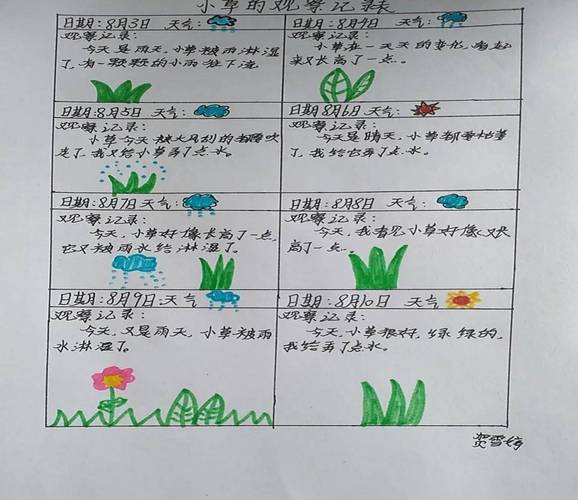 小草的观察记录表
日期:8月3日 天气:
观察记录:
今天是雨天,小草被雨淋湿
了,有一颗颗的小雨往下流
日期:8月4日 天气:
观察记录:
小草在一天天的变化,看起
来又长高了一点。
日期:8月5日 天气:
观察记录:
小草今天被大风刮的都要吹
走了,我又给小草弄了点水。
日期:8月6日 天气:
观察记录:
今天是晴天,小草都要枯萎
了,我给它弄了点水。
日期:8月7日 天气:
观察记录:
今天,小草好像长高了一点,
它又被雨水给淋湿了。
日期:8月8日 天气:
观察记录:
今天,我看见小草好像又长
高了一点。
日期:8月9日:天气:
观察记录:
今天,又是雨天,小草被雨
水淋湿了。
日期:8月10日 天气:
观察记录:
今天,小草很好,绿绿的,
我给弄了点水。
雪婷